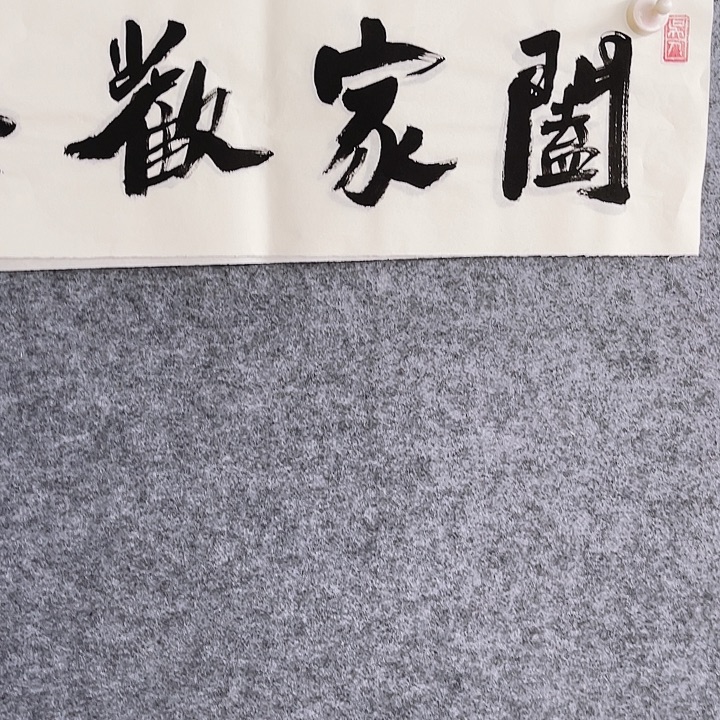 闔家歡